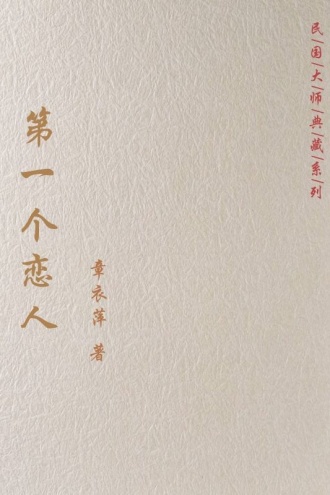 民国大师典藏系列
第一个恋人
章衣萍 著